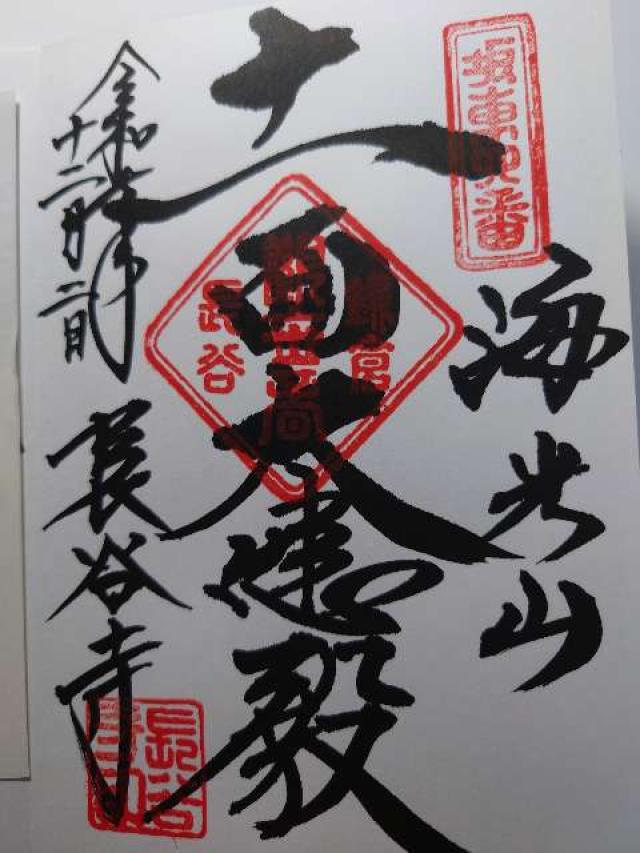 坂東四番
海光山
十一面大悲殿
鎌倉
観世音
長谷
令和年
十二月二日
長谷寺
長谷